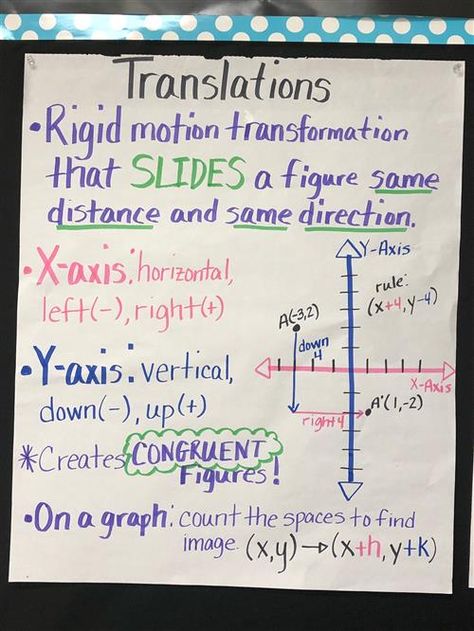 Translations
•Rigid motion transformation
that SLIDES a figure same
distance and same direction.
•X-axis: horizontal,
left(-), right(+)
•Y-axis: vertical,
down(-), up(+)
*Creates CONGRUENT
Figures!
Y-Axis
rule:
(x+4, y-4)
A(-3,2)
down
4
X-Axis
right 4
A'(1,-2)
•On a graph: count the spaces to find
image. (x,y)→(x+h, y+k)